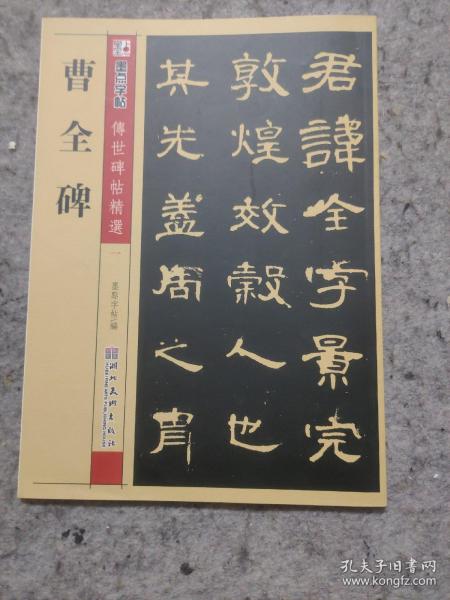 曹全碑
墨点字帖
傳世碑帖精選
一
墨點字帖 編
湖北美術出版社
君諱全字景完
敦煌效穀人也
其先蓋周之胄
孔夫子旧书网
www.kongfz.com